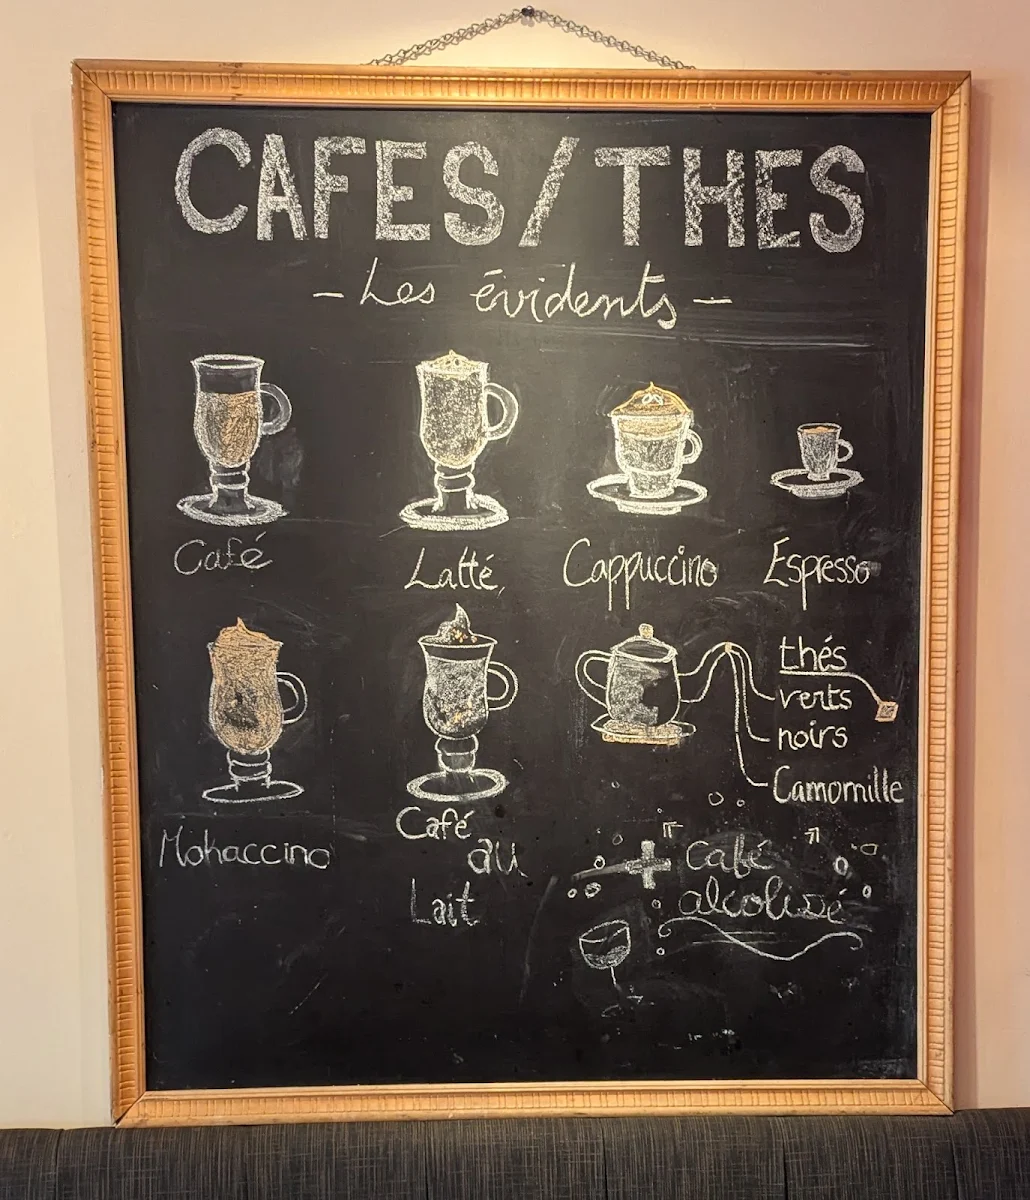 CAFES/THES
- Les évidents -
Café
Latté
Cappuccino
Espresso
Mokaccino
Café
au
Lait
thés
verts
noirs
Camomille
+ Café
alcolisé